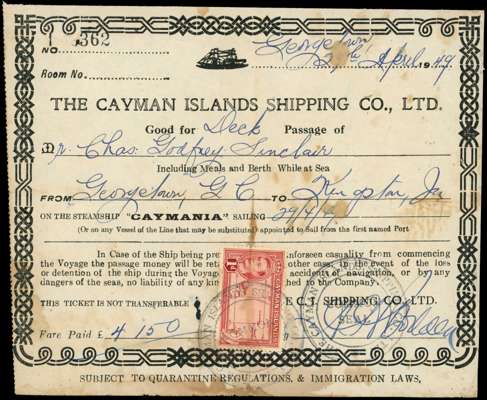 NO. 1362
Georgetown
27th April 1949
Room No.
THE CAYMAN ISLANDS SHIPPING CO., LTD.
Good for Deck Passage of
Mr. Chas. Godfrey Sinclair
Including Meals and Berth While at Sea
FROM Georgetown, G.C. TO Kingston, Ja
ON THE STEAMSHIP "CAYMANIA" SAILING 29/4/49
(Or on any Vessel of the Line that may be substituted) appointed to Sail from the first named Port
In Case of the Ship being pre nforseen casualty from commencing
the Voyage the passage money will be reta other case, in the event of the loss
or detention of the ship during the Voyage accidents of navigation, or by any
dangers of the seas, no liability of any kin ched to the Company.
THIS TICKET IS NOT TRANSFERABLE E C. I. SHIPPING CO., LTD.
Fare Paid £ 4 15 0
1D
CAYMAN ISLANDS
SUBJECT TO QUARANTINE REGULATIONS, & IMMIGRATION LAWS,